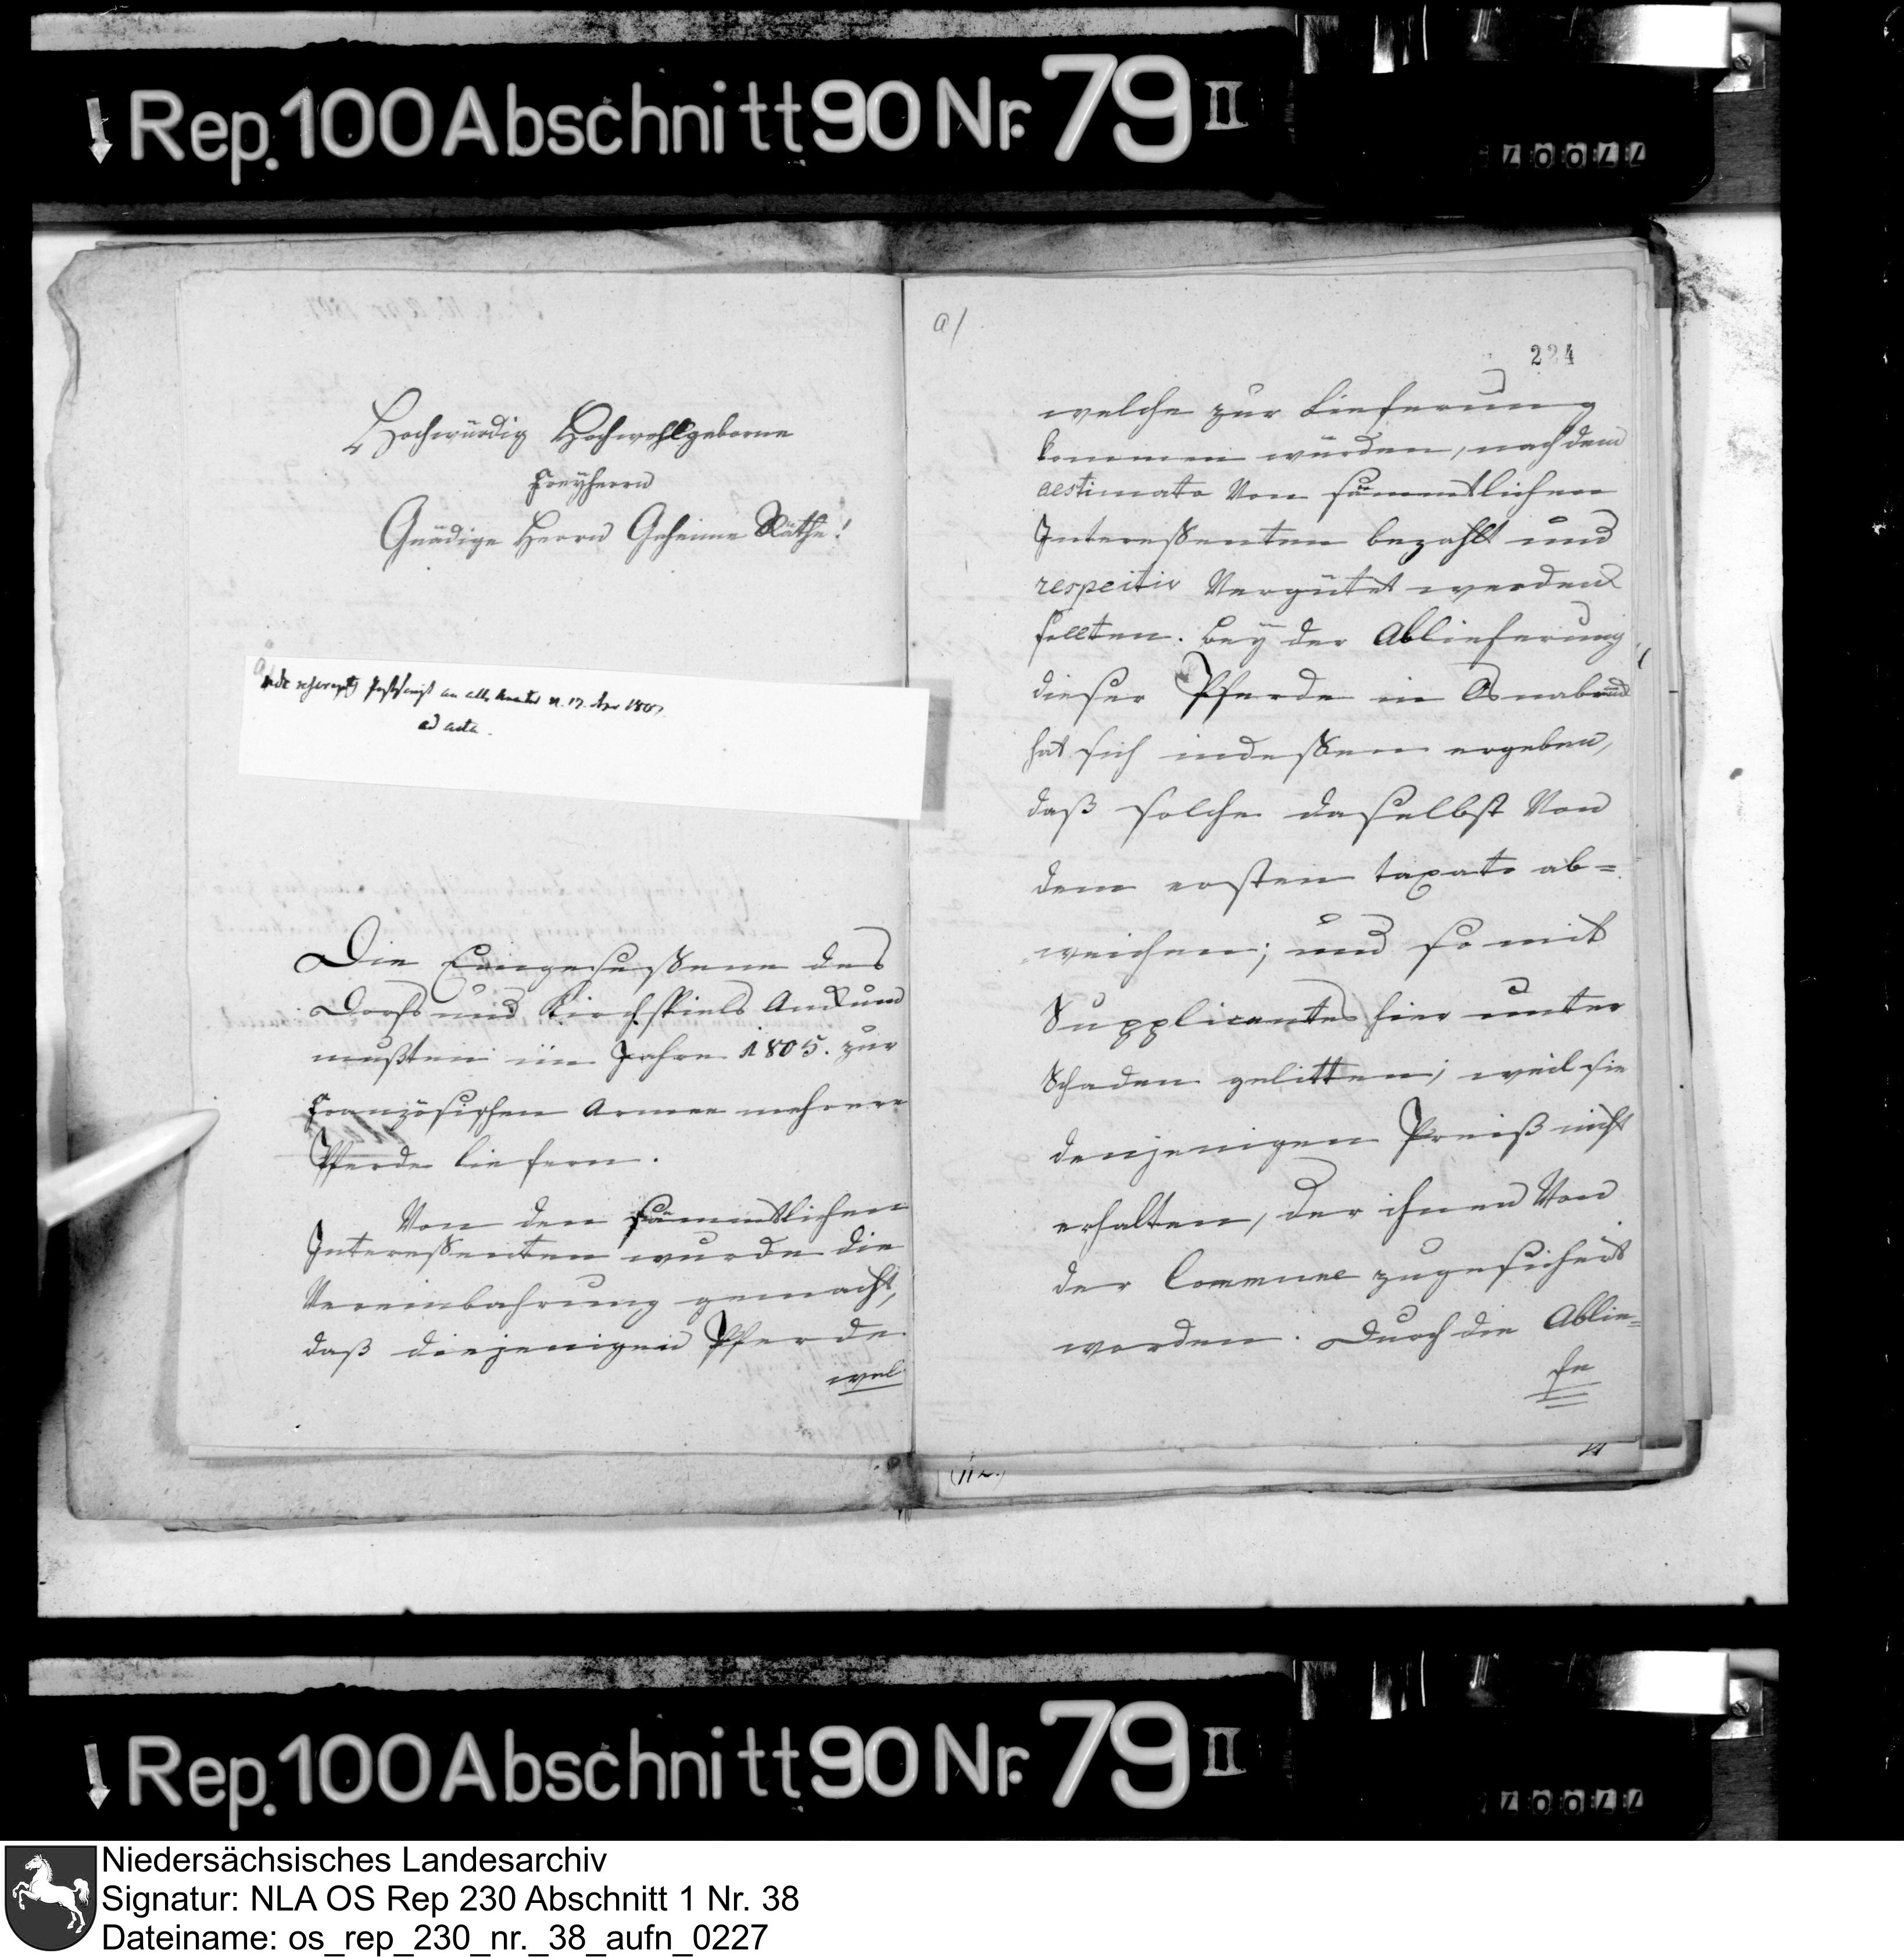 Rep. 100 Abschnitt 90 Nr. 79 II
Hochwürdig Hochwohlgeborne
Freyherrn
Gnädige Herrn Geheime Räthe!
ad acta.
Die Eingeseßene des
Dorfs und Kirchspiels Ankum
mußten im Jahre 1805. zur
Französischen Armee mehrere
Pferde liefern.
Von den sämmtlichen
Intereßenten wurde die
Vereinbahrung gemacht,
daß diejenigen Pferde
wel
a/
224
welche zur Lieferung
kommen würden, nach dem
aestimato von sämmtlichen
Intereßenten bezahlt und
respective Vergütet werden
sollten. Bey der Ablieferung
dieser Pferde in Osnabrück
hat sich indeßen ergeben,
daß solche daselbst Von
dem ersten taxato ab=
weichen; und somit
Supplicantes hier unter
Schaden gelitten; weil sie
denjenigen Preiß nicht
erhalten, der ihnen Von
der Commune zugesichert
worden. Durch die Ablie=
fe
Rep. 100 Abschnitt 90 Nr. 79 II
Niedersächsisches Landesarchiv
Signatur: NLA OS Rep 230 Abschnitt 1 Nr. 38
Dateiname: os_rep_230_nr._38_aufn_0227